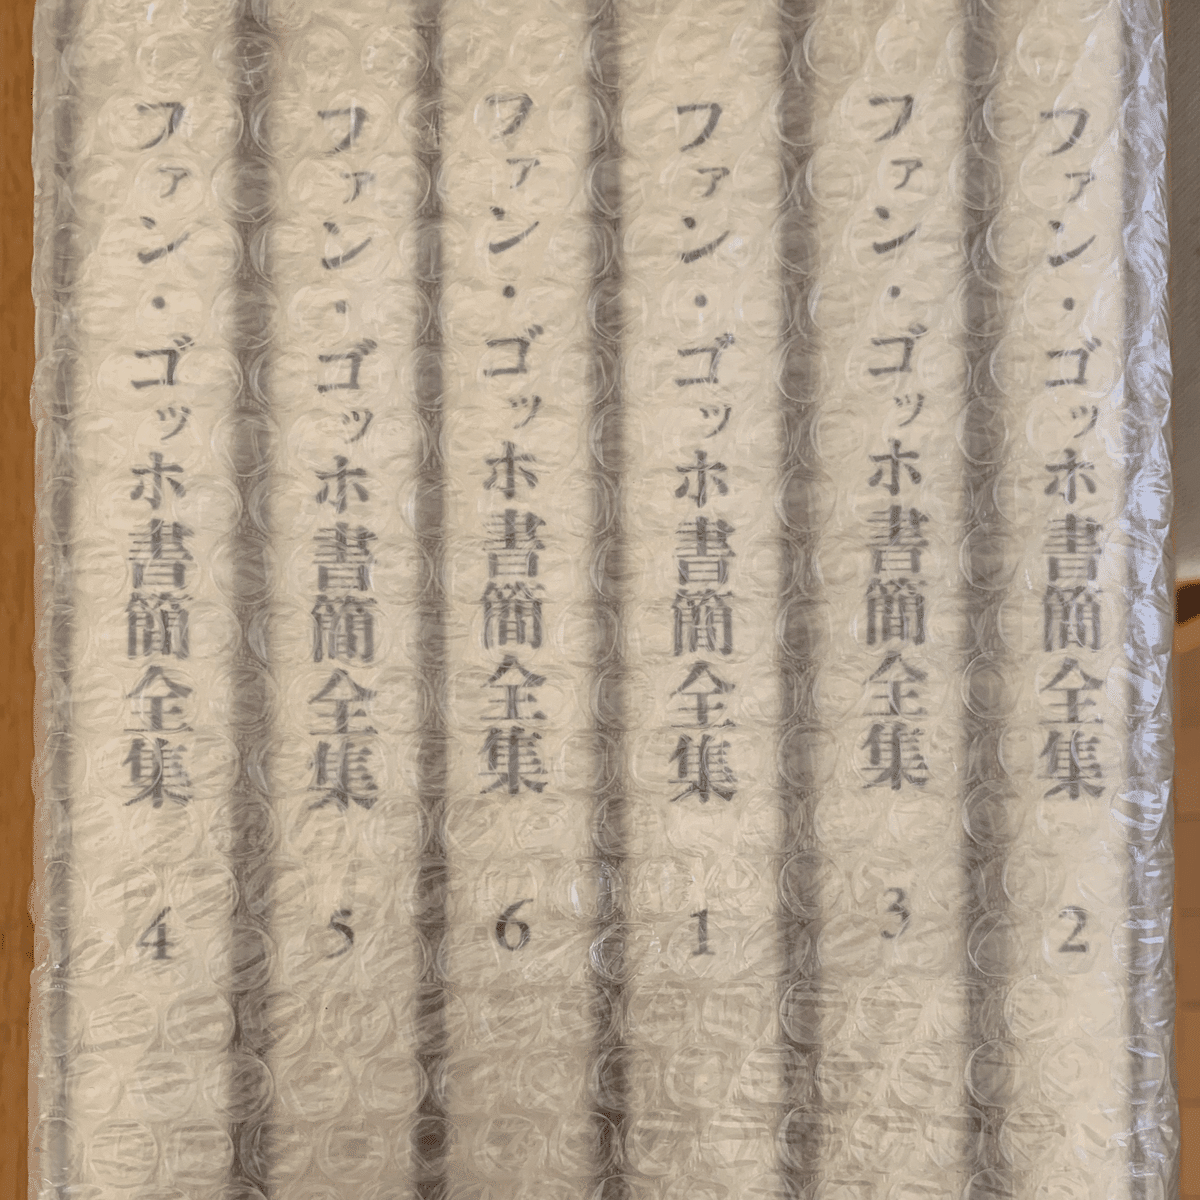 ファン・ゴッホ書簡全集 4
ファン・ゴッホ書簡全集 5
ファン・ゴッホ書簡全集 6
ファン・ゴッホ書簡全集 1
ファン・ゴッホ書簡全集 3
ファン・ゴッホ書簡全集 2